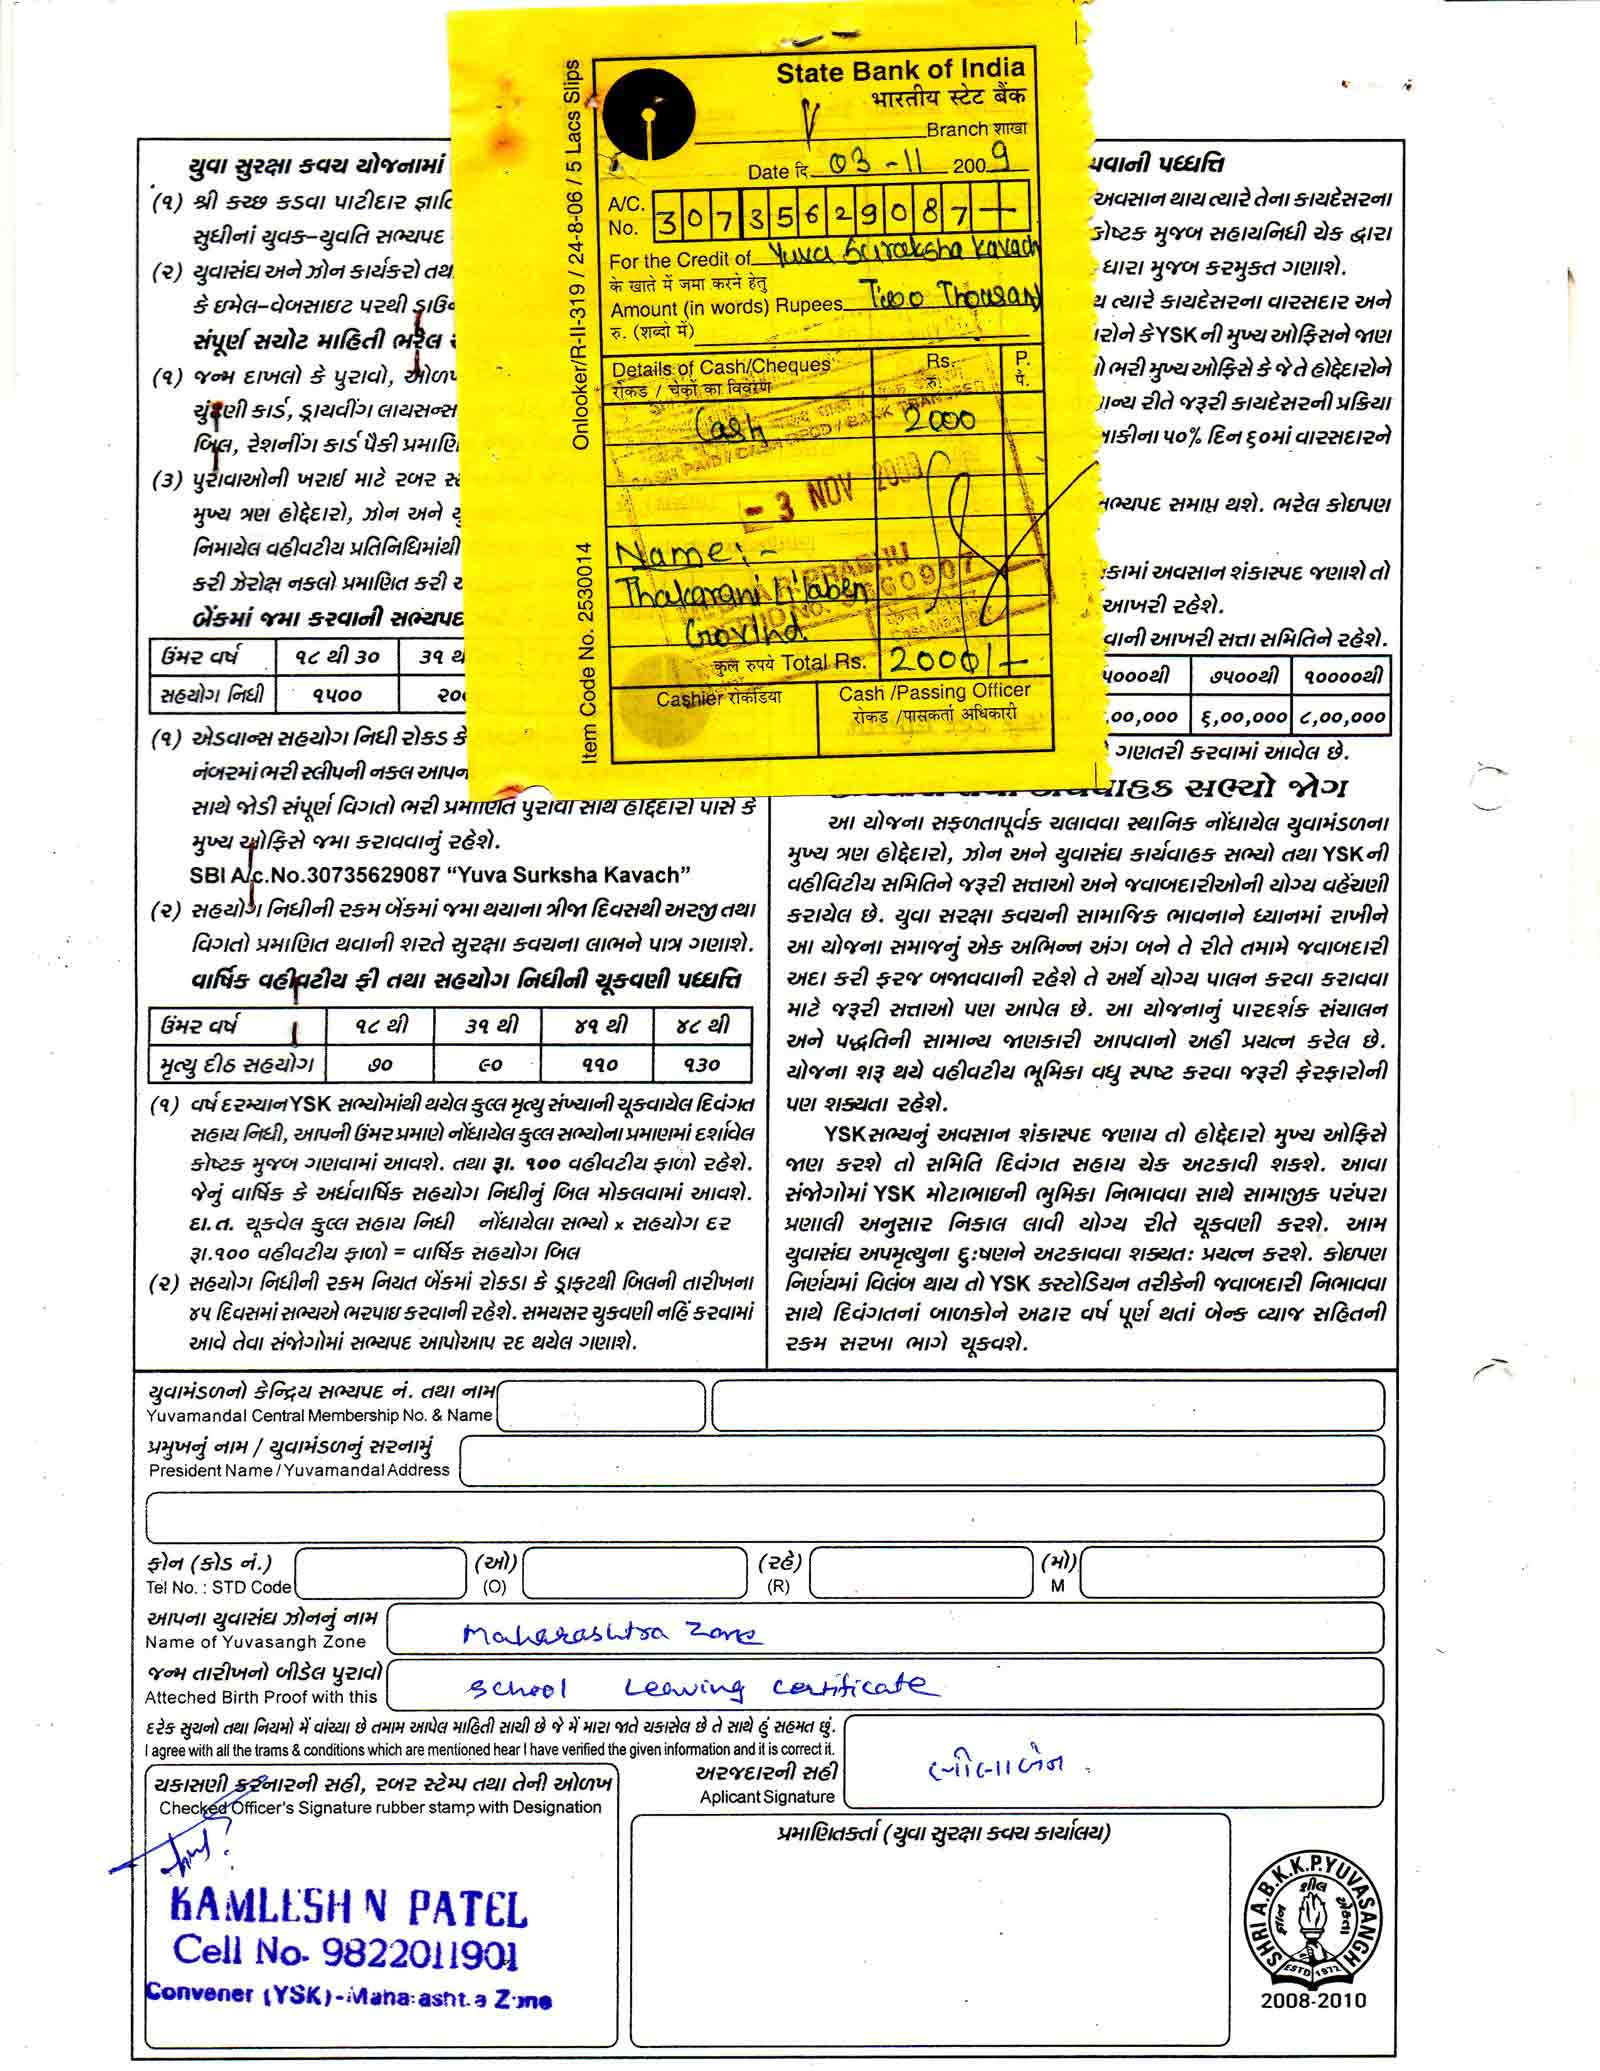 State Bank of India
भारतीय स्टेट बैंक
Branch शाखा
Date दि. 03-11 2009
A/C. No. 30735629087
For the Credit of Yuva Suraksha Kavach
के खाते में जमा करने हेतु
Amount (in words) Rupees Two Thousand
रु. (शब्दो में)
Details of Cash/Cheques Rs. P.
रोकड / चेकों का विवरण रु. पै.
Cash 2000
- 3 NOV 2009
Name:-
Thakarani
Govind
कुल रुपये Total Rs. 2000/-
Cashier रोकडिया Cash /Passing Officer
रोकड /पासकर्ता अधिकारी
Onlooker/R-II-319 / 24-8-06 / 5 Lacs Slips
Item Code No. 2530014
યુવા સુરક્ષા કવચ યોજનામાં
(૧) શ્રી કચ્છ કડવા પાટીદાર
સુધીનાં યુવક–યુવતિ સભ્યપદ
(૨) યુવાસંઘ અને ઝોન કાર્યકરો
કે ઇમેલ–વેબસાઇટ પરથી
સંપૂર્ણ સચોટ માહિતી ભરેલ
(૧) જન્મ દાખલો કે પુરાવો,
ચુંટણી કાર્ડ, ડ્રાયવીંગ લાયસન્સ
બિલ, રેશનીંગ કાર્ડ પૈકી
(૩) પુરાવાઓની ખરાઇ માટે રબર
મુખ્ય ત્રણ હોદ્દેદારો, ઝોન અને
નિમાયેલ વહીવટીય પ્રતિનિધિમાંથી
કરી ઝેરોક્ષ નકલો પ્રમાણિત કરી
બેંકમાં જમા કરવાની સભ્યપદ
ઉંમર વર્ષ ૧૮ થી ૩૦ ૩૧
સહયોગ નિધી ૧૫૦૦
(૧) એડવાન્સ સહયોગ નિધી રોકડ કે
નંબરમાં ભરી સ્લીપની નકલ
સાથે જોડી સંપૂર્ણ વિગતો ભરી પ્રમાણિત પુરાવા સાથે હોદ્દેદારો પાસે કે
મુખ્ય ઓફિસે જમા કરાવવાનું રહેશે.
SBI A/c.No.30735629087 “Yuva Surksha Kavach”
(૨) સહયોગ નિધીની રકમ બેંકમાં જમા થયાના ત્રીજા દિવસથી અરજી તથા
વિગતો પ્રમાણિત થવાની શરતે સુરક્ષા કવચના લાભને પાત્ર ગણાશે.
વાર્ષિક વહીવટીય ફી તથા સહયોગ નિધીની ચૂકવણી પધ્ધતિ
ઉંમર વર્ષ ૧૮ થી ૩૧ થી ૪૧ થી ૪૮ થી
મૃત્યુ દીઠ સહયોગ ૭૦ ૯૦ ૧૧૦ ૧૩૦
(૧) વર્ષ દરમ્યાન YSK સભ્યોમાંથી થયેલ કુલ્લ મૃત્યુ સંખ્યાની ચૂકવાયેલ દિવંગત
સહાય નિધી, આપની ઉંમર પ્રમાણે નોંધાયેલ કુલ્લ સભ્યોના પ્રમાણમાં દર્શાવેલ
કોષ્ટક મુજબ ગણવામાં આવશે. તથા રૂા. ૧૦૦ વહીવટીય ફાળો રહેશે.
જેનું વાર્ષિક કે અર્ધવાર્ષિક સહયોગ નિધીનું બિલ મોકલવામાં આવશે.
દા.ત. ચૂકવેલ કુલ્લ સહાય નિધી નોંધાયેલા સભ્યો x સહયોગ દર
રૂા.૧૦૦ વહીવટીય ફાળો = વાર્ષિક સહયોગ બિલ
(૨) સહયોગ નિધીની રકમ નિયત બેંકમાં રોકડા કે ડ્રાફ્ટથી બિલની તારીખના
૪૫ દિવસમાં સભ્યએ ભરપાઇ કરવાની રહેશે. સમયસર ચુકવણી નહિં કરવામાં
આવે તેવા સંજોગોમાં સભ્યપદ આપોઆપ રદ થયેલ ગણાશે.
પધ્ધતિ
અવસાન થાય ત્યારે તેના કાયદેસરના
કોષ્ટક મુજબ સહાયનિધી ચેક દ્વારા
ધારા મુજબ કરમુક્ત ગણાશે.
ત્યારે કાયદેસરના વારસદાર અને
કે YSK ની મુખ્ય ઓફિસને જાણ
ભરી મુખ્ય ઓફિસે કે જે તે હોદ્દેદારોને
રીતે જરૂરી કાયદેસરની પ્રક્રિયા
૫૦% દિન ૬૦માં વારસદારને
સભ્યપદ સમાપ્ત થશે. ભરેલ કોઇપણ
અવસાન શંકાસ્પદ જણાશે તો
આખરી રહેશે.
આખરી સત્તા સમિતિને રહેશે.
૫૦૦૦થી ૭૫૦૦થી ૧૦૦૦૦થી
,૦૦,૦૦૦ ૬,૦૦,૦૦૦ ૮,૦૦,૦૦૦
ગણતરી કરવામાં આવેલ છે.
સભ્યો જોગ
આ યોજના સફળતાપૂર્વક ચલાવવા સ્થાનિક નોંધાયેલ યુવામંડળના
મુખ્ય ત્રણ હોદ્દેદારો, ઝોન અને યુવાસંઘ કાર્યવાહક સભ્યો તથા YSK ની
વહીવિટીય સમિતિને જરૂરી સત્તાઓ અને જવાબદારીઓની યોગ્ય વહેંચણી
કરાયેલ છે. યુવા સરક્ષા કવચની સામાજિક ભાવનાને ધ્યાનમાં રાખીને
આ યોજના સમાજનું એક અભિન્ન અંગ બને તે રીતે તમામે જવાબદારી
અદા કરી ફરજ બજાવવાની રહેશે તે અર્થે યોગ્ય પાલન કરવા કરાવવા
માટે જરૂરી સત્તાઓ પણ આપેલ છે. આ યોજનાનું પારદર્શક સંચાલન
અને પદ્ધતિની સામાન્ય જાણકારી આપવાનો અહીં પ્રયત્ન કરેલ છે.
યોજના શરૂ થયે વહીવટીય ભૂમિકા વધુ સ્પષ્ટ કરવા જરૂરી ફેરફારોની
પણ શક્યતા રહેશે.
YSK સભ્યનું અવસાન શંકાસ્પદ જણાય તો હોદ્દેદારો મુખ્ય ઓફિસે
જાણ કરશે તો સમિતિ દિવંગત સહાય ચેક અટકાવી શકશે. આવા
સંજોગોમાં YSK મોટાભાઇની ભુમિકા નિભાવવા સાથે સામાજીક પરંપરા
પ્રણાલી અનુસાર નિકાલ લાવી યોગ્ય રીતે ચૂકવણી કરશે. આમ
યુવાસંઘ અપમૃત્યુના દુ:ષણને અટકાવવા શક્યત: પ્રયત્ન કરશે. કોઇપણ
નિર્ણયમાં વિલંબ થાય તો YSK કસ્ટોડિયન તરીકેની જવાબદારી નિભાવવા
સાથે દિવંગતનાં બાળકોને અઢાર વર્ષ પૂર્ણ થતાં બેન્ક વ્યાજ સહિતની
રકમ સરખા ભાગે ચૂકવશે.
યુવામંડળનો કેન્દ્રિય સભ્યપદ નં. તથા નામ
Yuvamandal Central Membership No. & Name
પ્રમુખનું નામ / યુવામંડળનું સરનામું
President Name / Yuvamandal Address
ફોન (કોડ નં.) (ઓ) (રહે) (મો)
Tel No. : STD Code (O) (R) M
આપના યુવાસંઘ ઝોનનું નામ
Name of Yuvasangh Zone Maharashtra Zone
જન્મ તારીખનો બીડેલ પુરાવો
Atteched Birth Proof with this School Leaving Certificate
દરેક સુચનો તથા નિયમો મેં વાંચ્યા છે તમામ આપેલ માહિતી સાચી છે જે મેં મારા જાતે ચકાસેલ છે તે સાથે હું સહમત છું.
I agree with all the trams & conditions which are mentioned hear I have verified the given information and it is correct it.
અરજદારની સહી
Aplicant Signature
લીલાબેન
ચકાસણી કરનારની સહી, રબર સ્ટેમ્પ તથા તેની ઓળખ
Checked Officer's Signature rubber stamp with Designation
KAMLESH N PATEL
Cell No. 9822011901
Convener (YSK)-Maharashtra Zone
પ્રમાણિતકર્તા (યુવા સુરક્ષા કવચ કાર્યાલય)
SHRI A.B.K.K.P. YUVASANGH
ESTD 1972
2008-2010